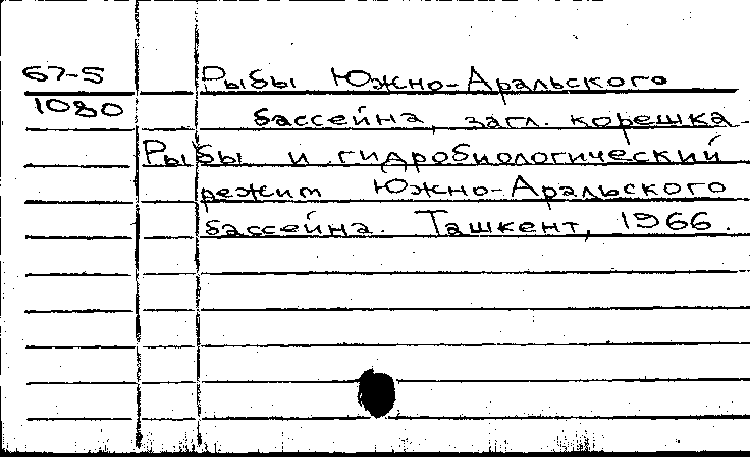 67-5 Рыбы Южно-Аральского
1080 бассейна, загл. корешка
Рыбы и гидробиологический
режим Южно-Аральского
бассейна. Ташкент, 1966.